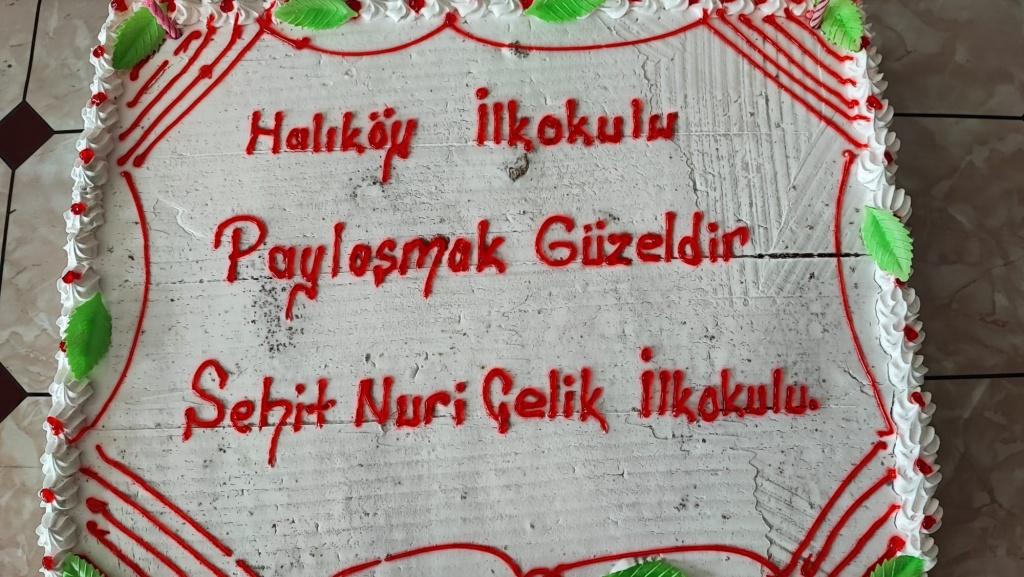 Halıköy İlkokulu
Paylaşmak Güzeldir
Şehit Nuri Çelik İlkokulu.